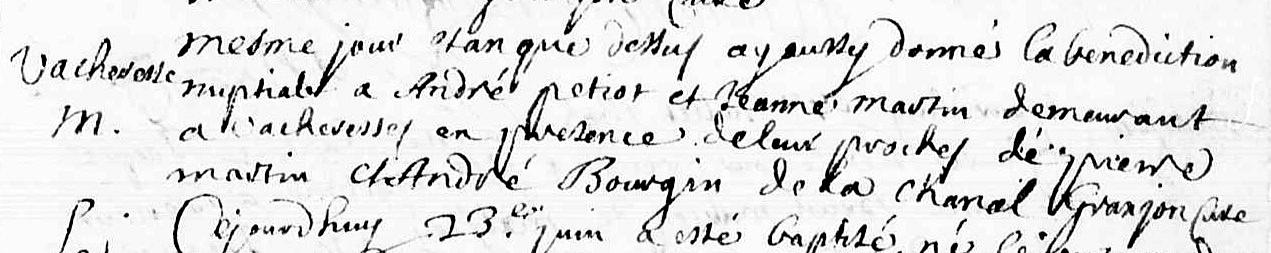 Curé
mesme jour et an que dessus ay aussy donnés la benediction
Vacheresse
nuptiale a André petiot et Jeanne martin demeurant
M.
a vacheresses en presence de leur proches de pierre
martin et André Bourgin de la chanal Granjon Curé
Cejourdhuy 23.e juin a esté baptisé né